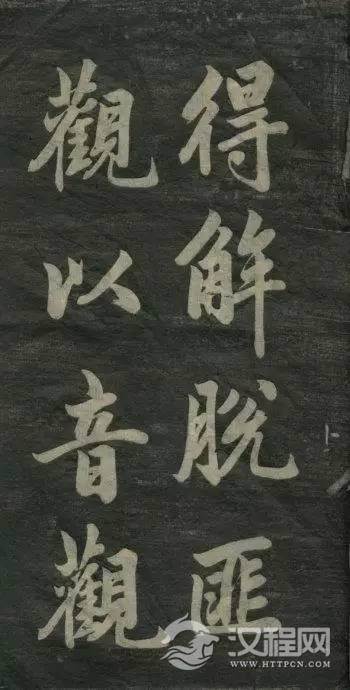 得解脫匪
觀以音觀
汉程网
WWW.HTTPCN.COM